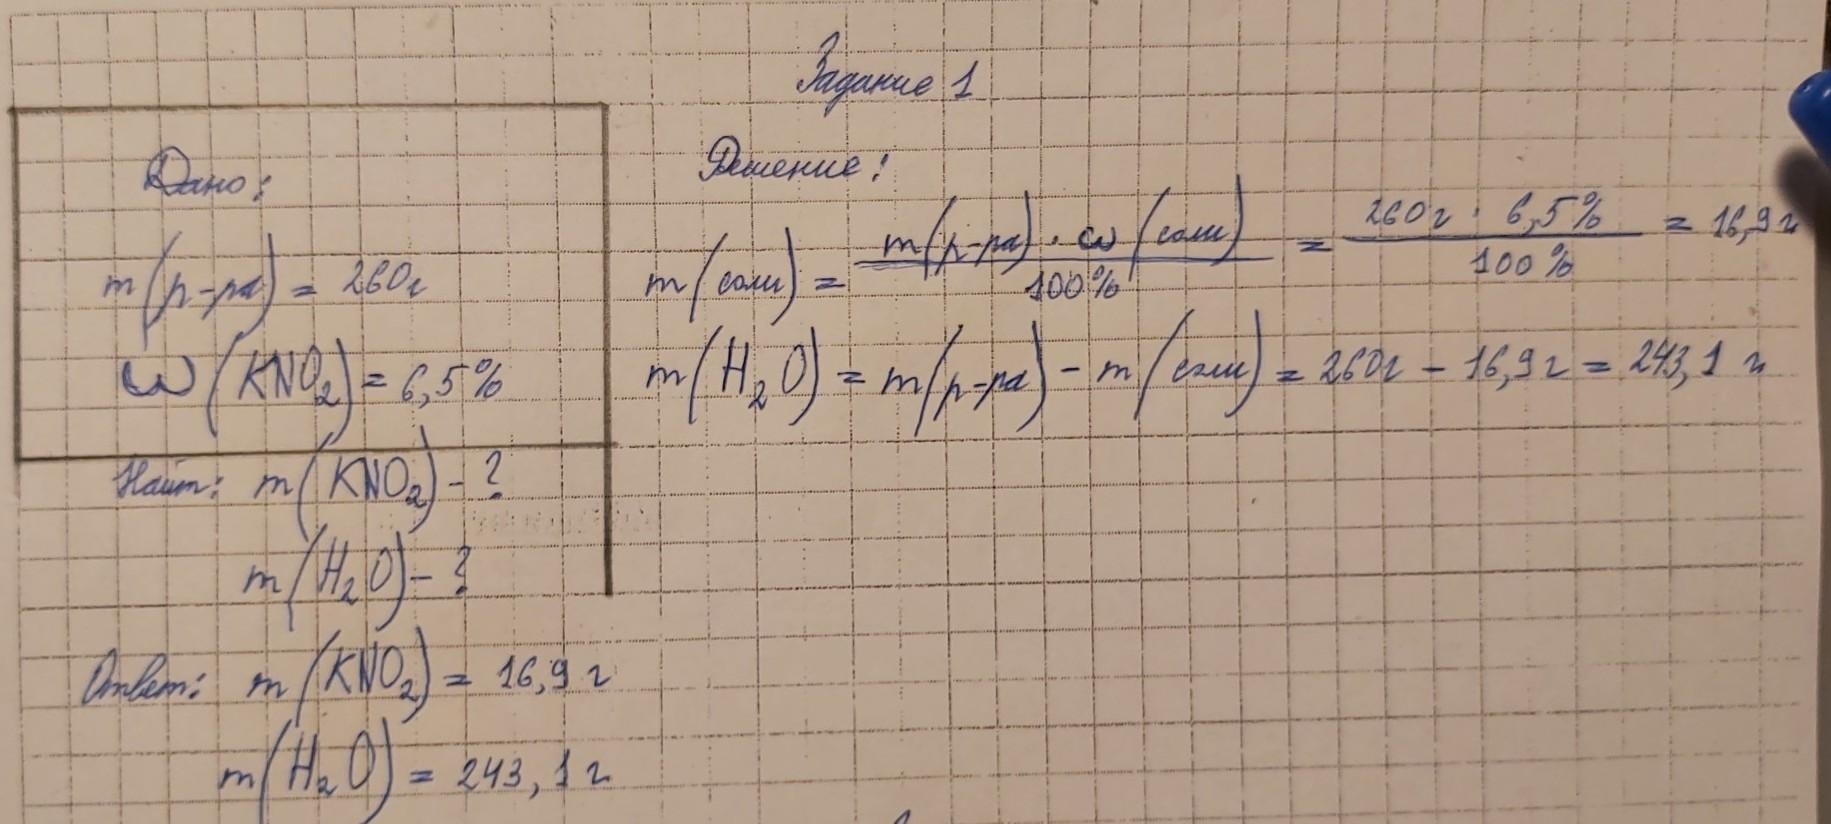 Задание 1
Дано:
m(р-ра) = 260г
ω(KNO₂) = 6,5%
Найт: m(KNO₂) - ?
m(H₂O) - ?
Решение:
m(соли) = m(р-ра) · ω(соли) / 100% = 260г · 6,5% / 100% = 16,9 г
m(H₂O) = m(р-ра) - m(соли) = 260г - 16,9 г = 243,1 г
Ответ: m(KNO₂) = 16,9 г
m(H₂O) = 243,1 г